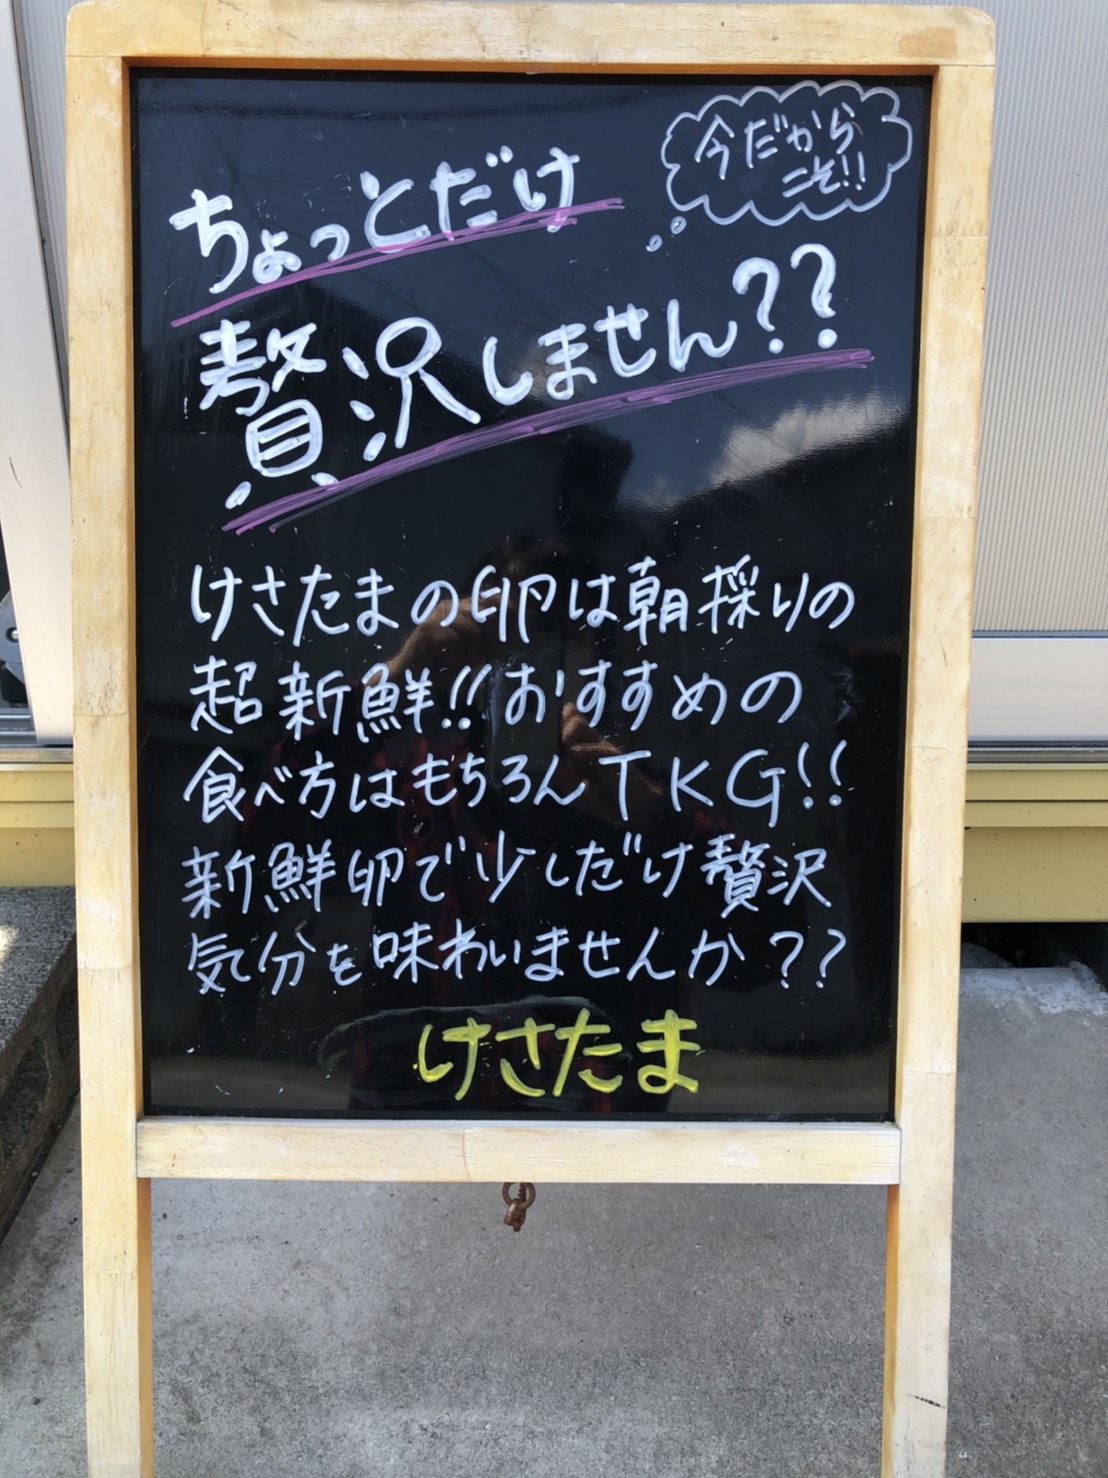 今だから
こそ!!
ちょっとだけ
贅沢しません??
けさたまの卵は朝採りの
超新鮮!!おすすめの
食べ方はもちろんTKG!!
新鮮卵で少しだけ贅沢
気分を味わいませんか??
けさたま